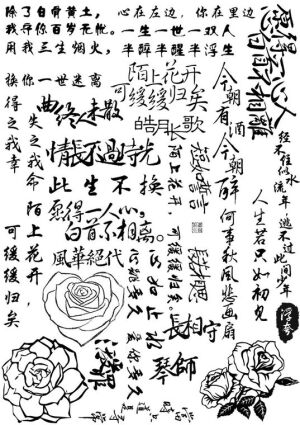 除了白骨黄土，
我等你百岁无忧。
用我三生烟火，
换你一世迷离
心在左边，你在里边
一生一世一双人
半醉半醒半浮生
愿得一心人
白首不相离
陌上花开
可缓缓归矣
今朝有酒今朝醉
曲终人未散
皓月长歌
得之我幸
失之我命
情长不过时光
此生不换
愿得一人心，
白首不相离。
風華絕代
陌上花开，可缓缓归矣
经不住似水流年
逃不过此间少年
人生若只如初见
何事秋风悲画扇
陌上花开，
可缓缓归矣
心如止水
長相守
琴師
浮夸